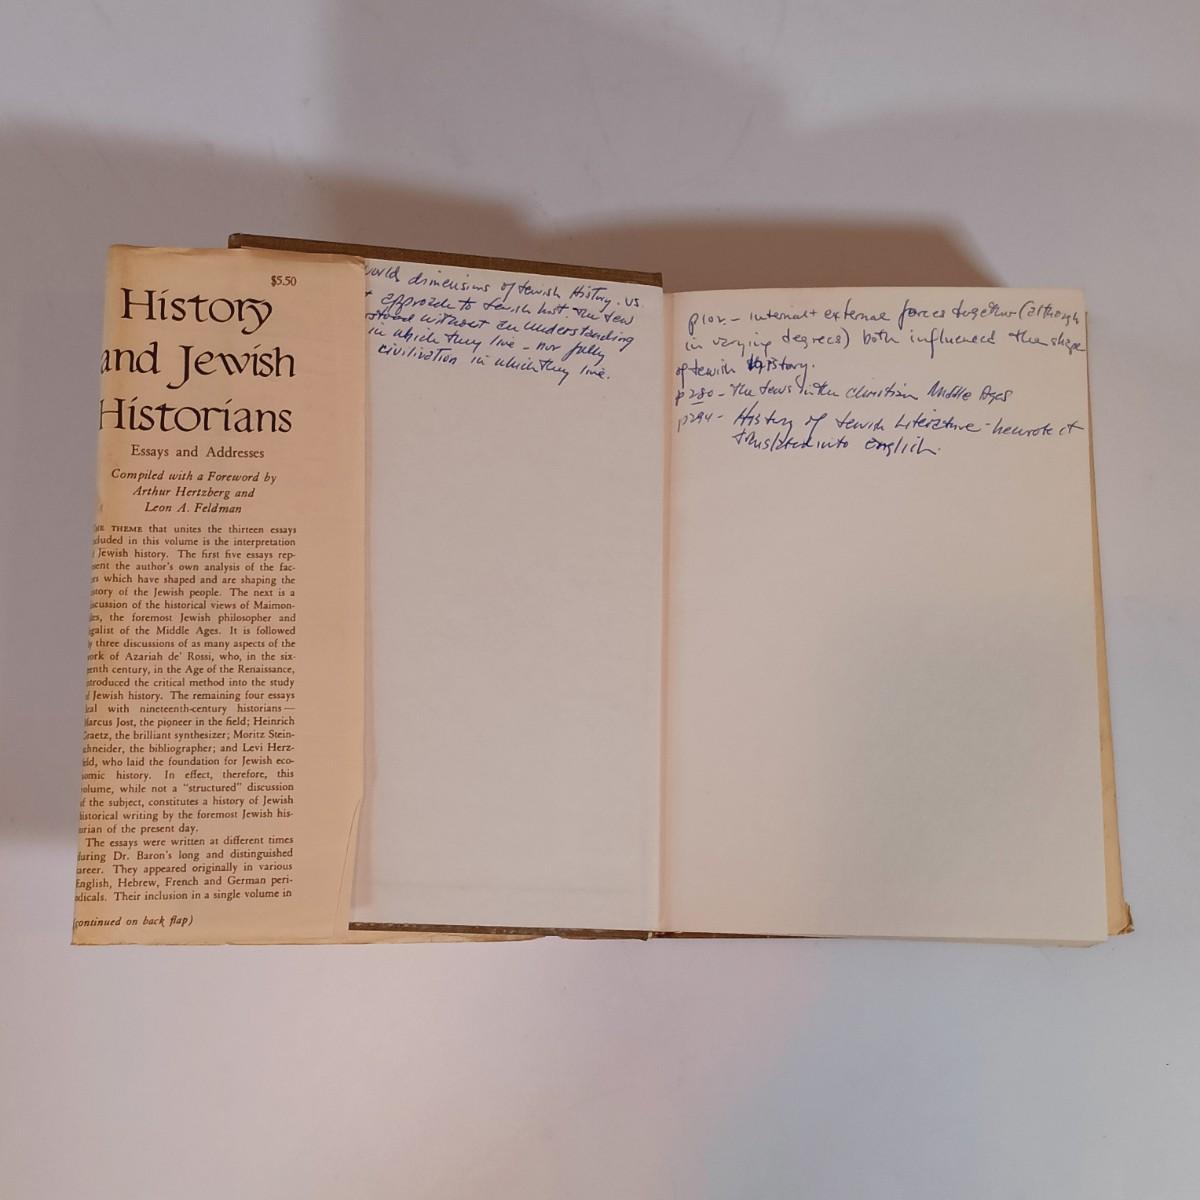 $5.50
History
and Jewish
Historians
Essays and Addresses
Compiled with a Foreword by
Arthur Hertzberg and
Leon A. Feldman
HE THEME that unites the thirteen essays
cluded in this volume is the interpretation
f Jewish history. The first five essays rep-
sent the author's own analysis of the fac-
rs which have shaped and are shaping the
story of the Jewish people. The next is a
scussion of the historical views of Maimon-
es, the foremost Jewish philosopher and
galist of the Middle Ages. It is followed
y three discussions of as many aspects of the
ork of Azariah de' Rossi, who, in the six-
enth century, in the Age of the Renaissance,
stroduced the critical method into the study
f Jewish history. The remaining four essays
eal with nineteenth-century historians—
Marcus Jost, the pioneer in the field; Heinrich
Graetz, the brilliant synthesizer; Moritz Stein-
chneider, the bibliographer; and Levi Herz-
eld, who laid the foundation for Jewish eco-
omic history. In effect, therefore, this
olume, while not a "structured" discussion
f the subject, constitutes a history of Jewish
istorical writing by the foremost Jewish his-
orian of the present day.
The essays were written at different times
during Dr. Baron's long and distinguished
areer. They appeared originally in various
English, Hebrew, French and German peri-
odicals. Their inclusion in a single volume in
(continued on back flap)
world dimensions of Jewish History. vs.
approach to Jewish hist. The Jew
stood without an understanding
in which they live - nor fully
civilization in which they live.
p102 - internal + external forces together (although
in varying degrees) both influenced the shape
of Jewish History.
p280 - The Jews in the Christian Middle Ages
p294 - History of Jewish Literature - he wrote it
translated into English.